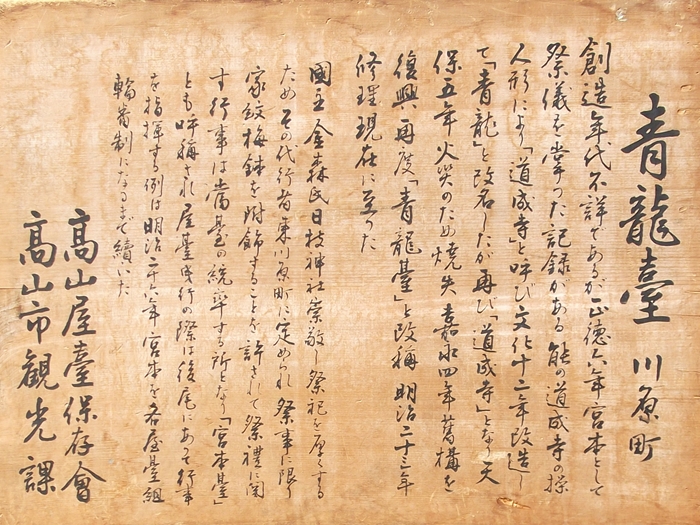 青龍臺 川原町
創造年代不詳であるが正徳六年宮本として
祭儀を掌った記録がある 能の道成寺の操
人形により「道成寺」と呼び文化十二年改造し
て「青龍」と改名したが再び「道成寺」となり天
保五年火災のため焼失 嘉永四年舊構を
復興 再度「青龍臺」と改稱 明治二十三年
修理現在に至った
國主金森氏日枝神社崇敬し祭祀を厚くする
ため その代行者東川原町に定められ 祭事に限り
家紋梅鉢を附飾することを許されて祭禮に関
す行事は當臺の統率する所となり「宮本臺」
とも呼称され 屋臺曳行の際は後尾にあって行事
を指揮する例は明治二十六年宮本を各屋臺組
輪番制になるまで續いた
高山屋臺保存會
高山市観光課